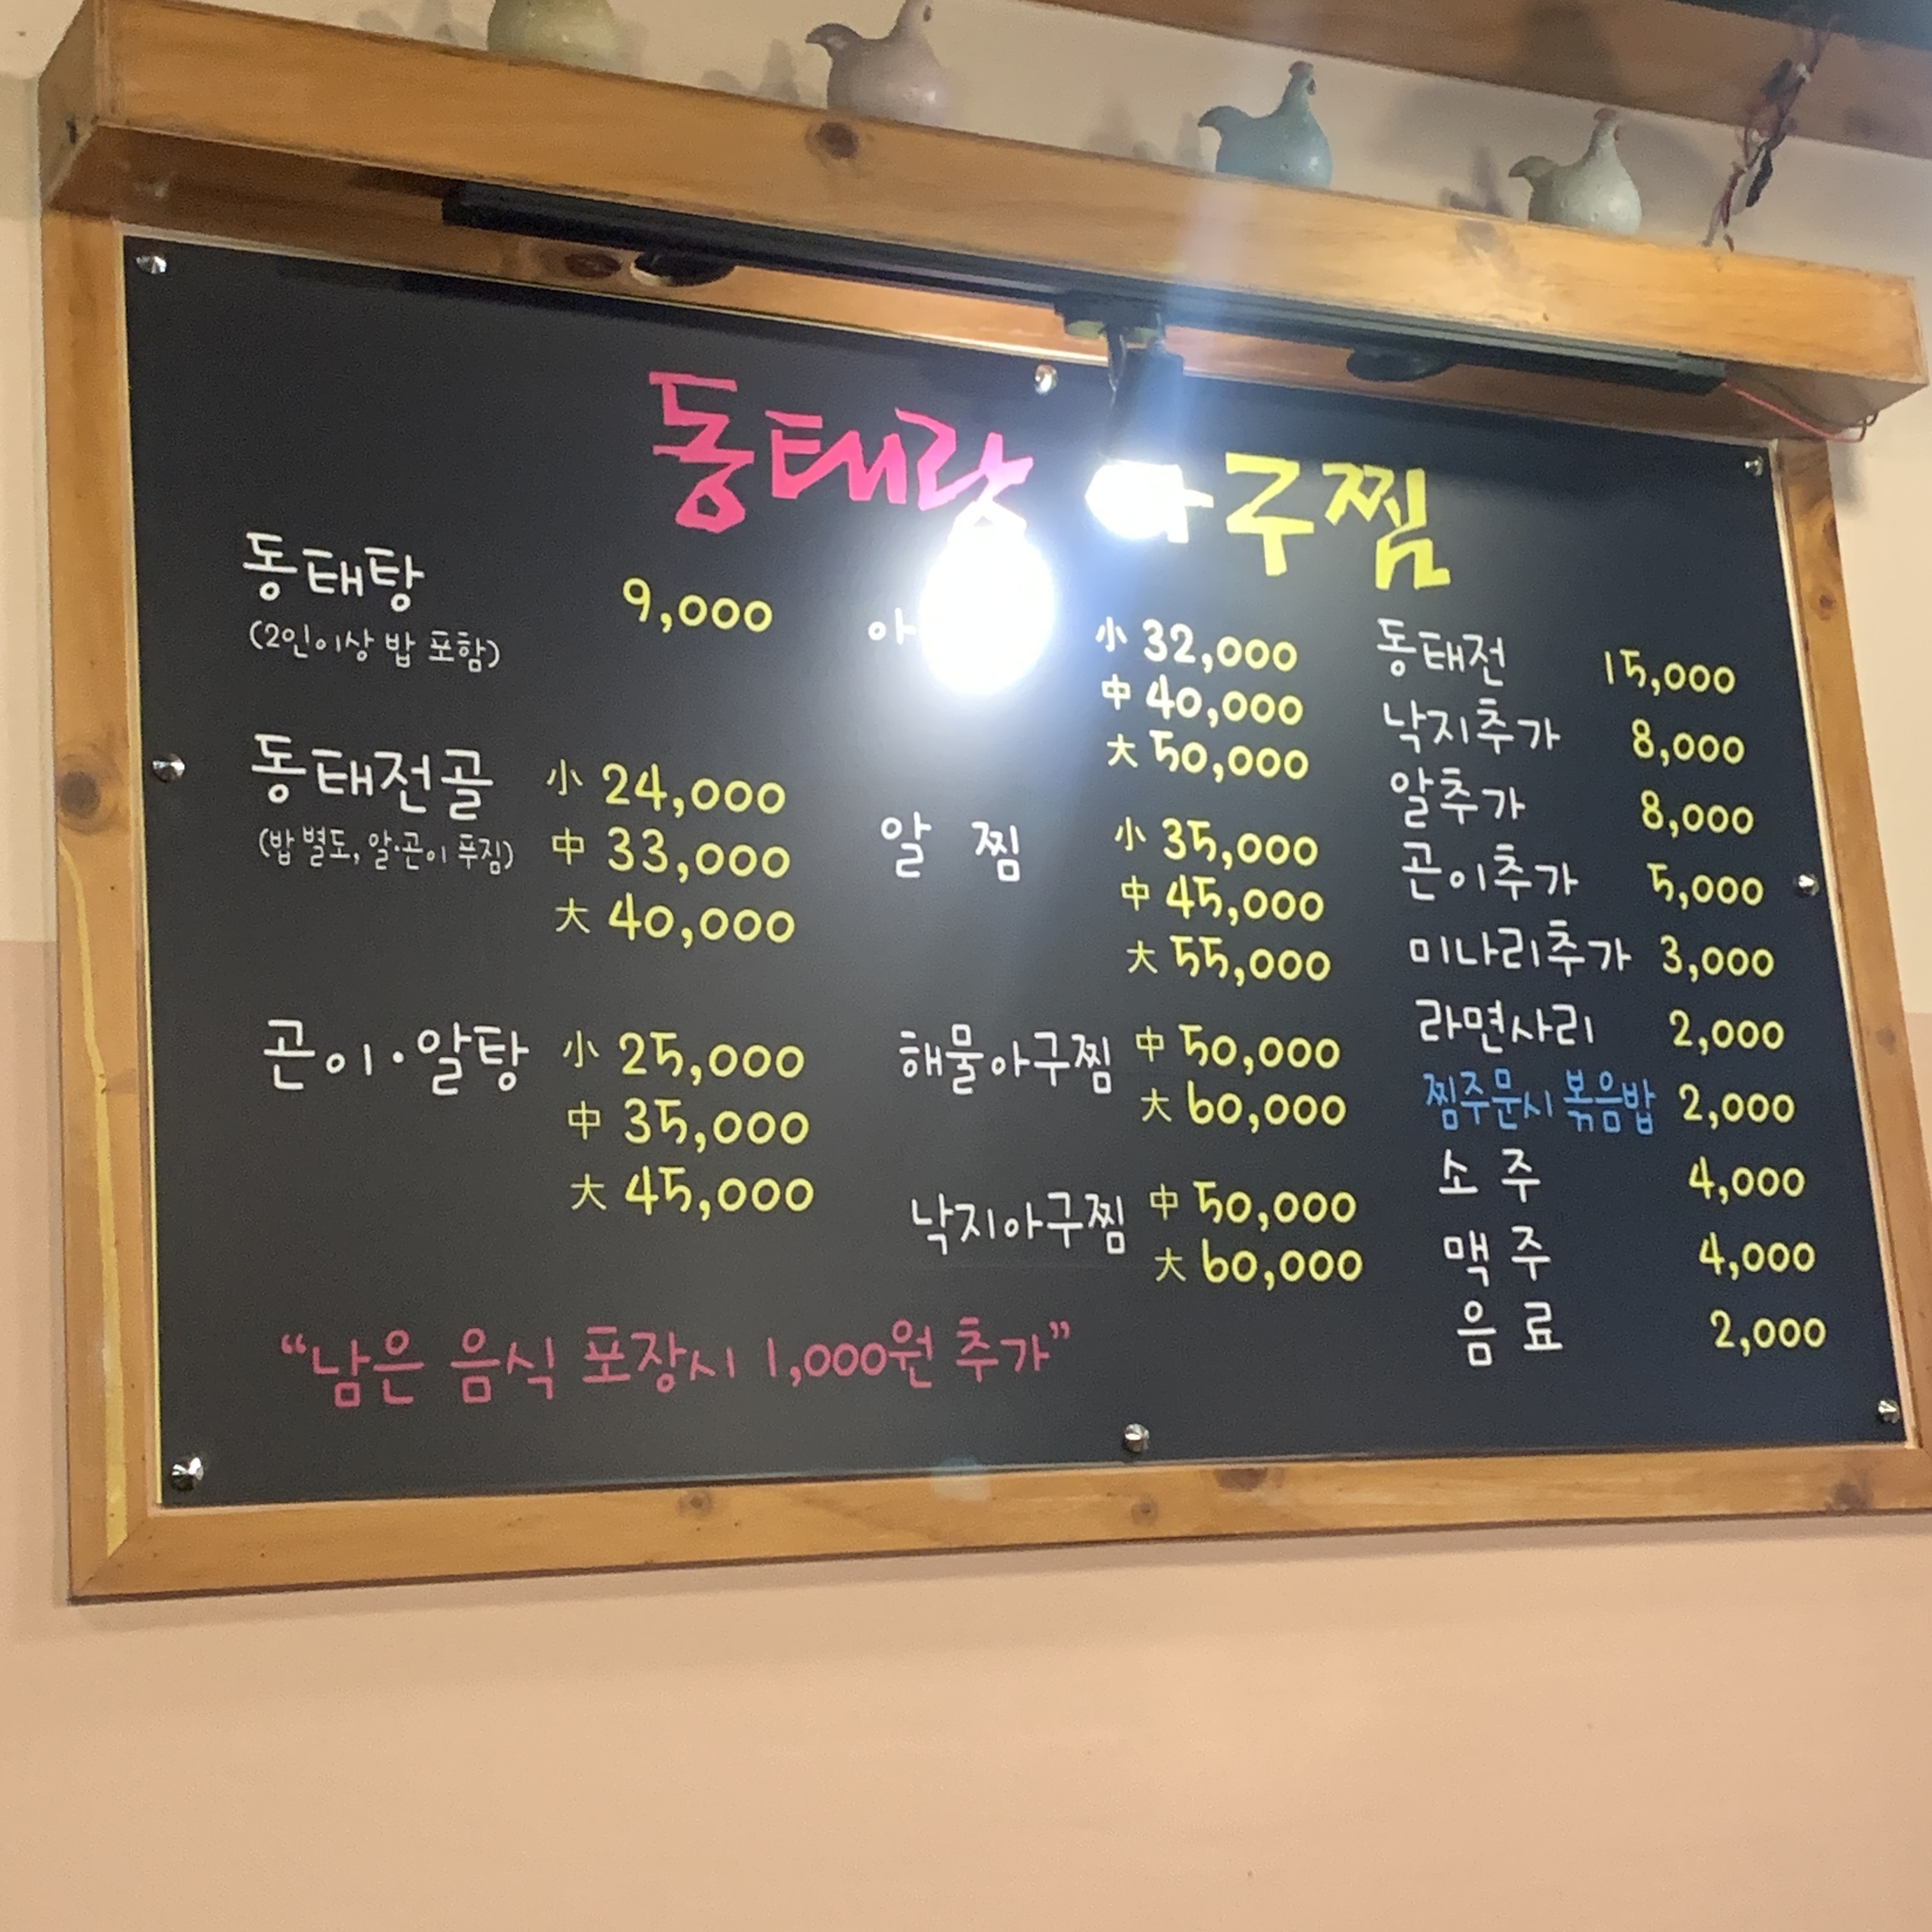 동태랑 구찜
동태탕 9,000
(2인이상 밥 포함)
동태전골 小 24,000
(밥 별도, 알·곤이 푸짐) 中 33,000
大 40,000
곤이·알탕 小 25,000
中 35,000
大 45,000
小 32,000
中 40,000
大 50,000
알 찜 小 35,000
中 45,000
大 55,000
해물아구찜 中 50,000
大 60,000
낙지아구찜 中 50,000
大 60,000
동태전 15,000
낙지추가 8,000
알추가 8,000
곤이추가 5,000
미나리추가 3,000
라면사리 2,000
찜주문시 볶음밥 2,000
소 주 4,000
맥 주 4,000
음 료 2,000
“남은 음식 포장시 1,000원 추가”